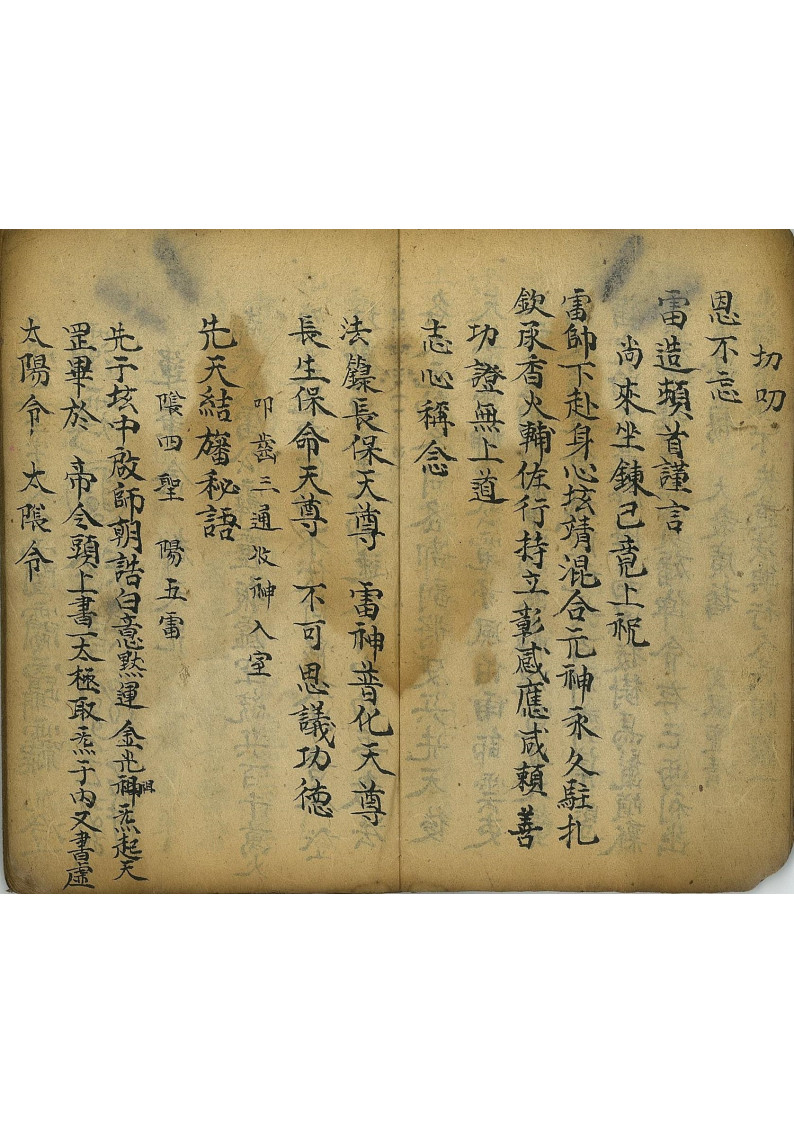 切叨
恩不忘
雷造頼首謹言
尚來坐鍊已竟上祝
雷帥下赴身心垓靖混合元神永久駐扎
欽承香火輔佐行持立彰感應咸賴善
功證無上道
志心稱念
法籙長保天尊 雷神普化天尊
長生保命天尊 不可思議功德
叩齒三通收神入室
先天結旛秘語
陰四聖 陽五雷
先于垓中啟師朝誥白意黙運金光神炁起天
罡畢於 帝令頭上書一太極取炁于內又書虛
太陽令 太陰令